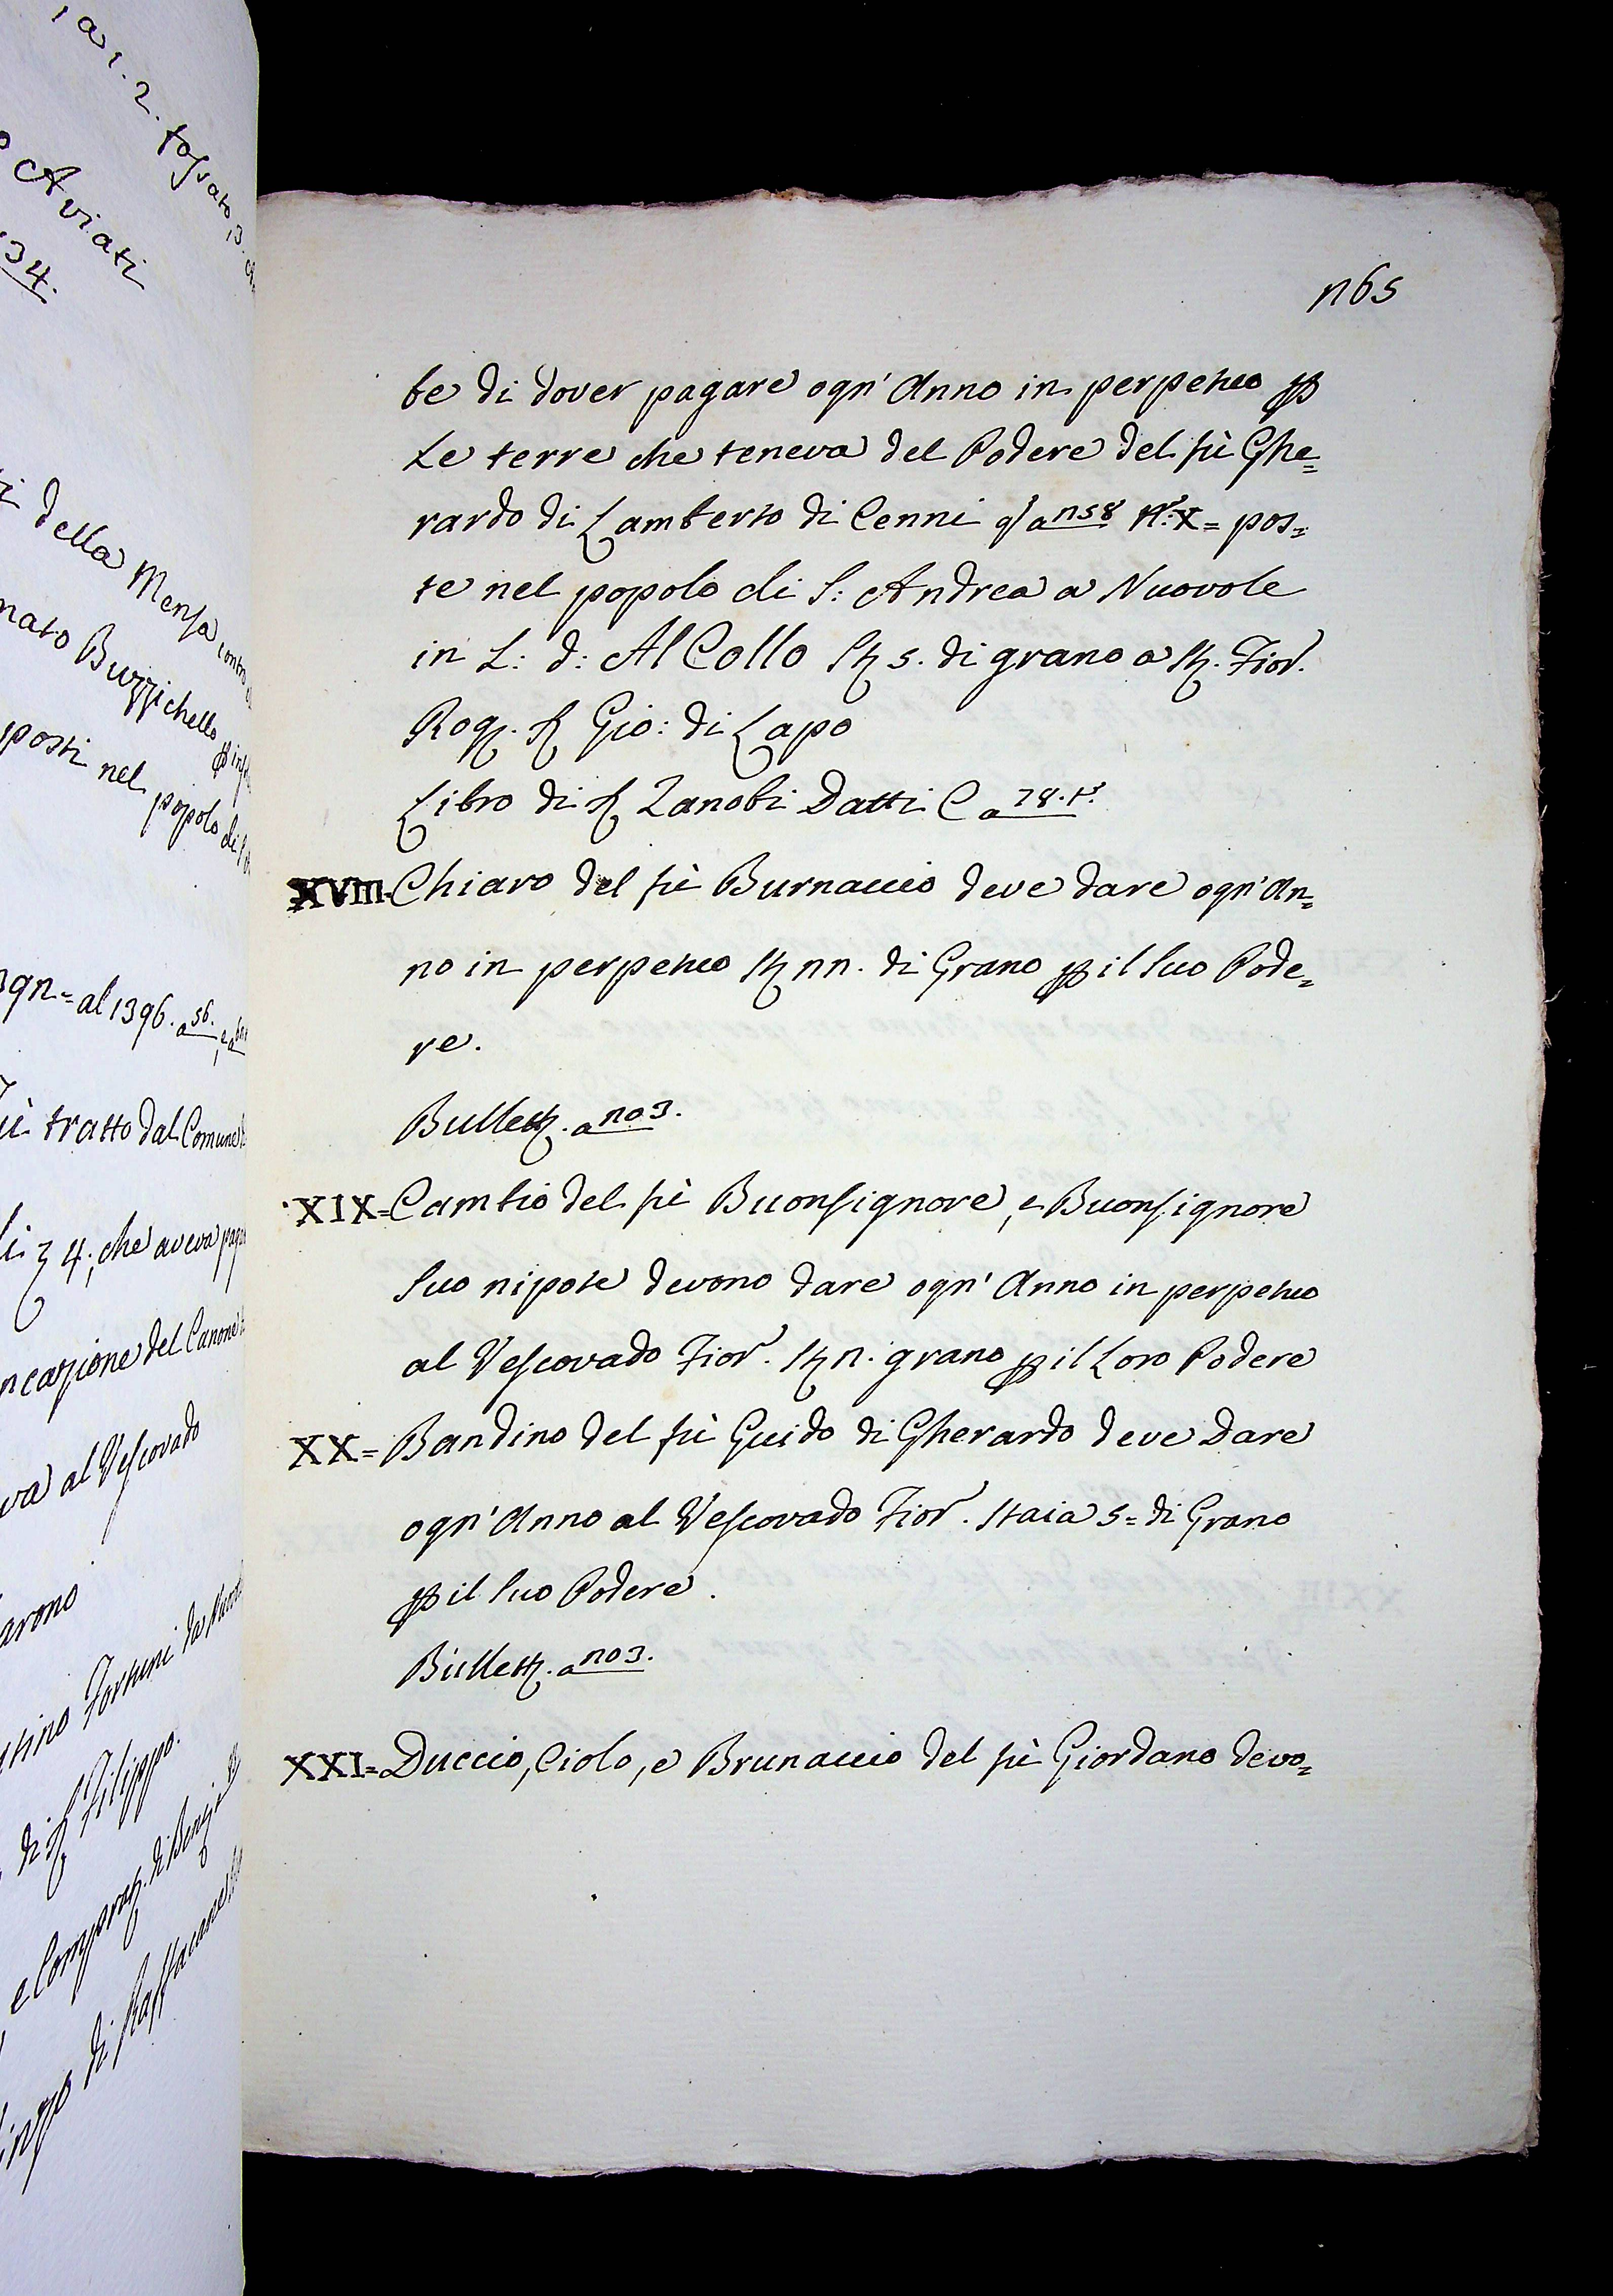 1 a 1. 2. fossato, 3.
Aviati
34.
della Mensa
nato Buzzichello
posti nel popolo di
al 1396. a 56.
tratto dal Comune
4; che aveva
ncazione del Canone
va al Vescovado
arono
Fortuni da
di Filippo.
e Comprat. di Benci
di
1165
be di dover pagare ogn' Anno in perpetuo p
Le terre che teneva del Podere del fù Ghe=
rardo di Lamberto di Cenni q a 1158 N.º X= pos=
te nel popolo di S: Andrea a Nuovole
in L: d: Al Collo St 5. di grano a St. Fior.
Rog. S Gio: di Lapo
Libro di S Zanobi Datti C a 78. t.
XVIII=Chiaro del fù Burnaccio deve dare ogn' An=
no in perpetuo St 11. di Grano p il suo Pode=
re.
Bullett. a 1103.
XIX=Cambio del fù Buonsignore, e Buonsignore
Suo nipote devono dare ogn' Anno in perpetuo
al Vescovado Fior. St 1. grano p il Loro Podere
XX= Bandino del fù Guido di Gherardo deve Dare
ogn' Anno al Vescovado Fior. Staia 5= di Grano
p il suo Podere.
Bullett. a 1103.
XXI=Duccio, Ciolo, e Brunaccio del fù Giordano devo=